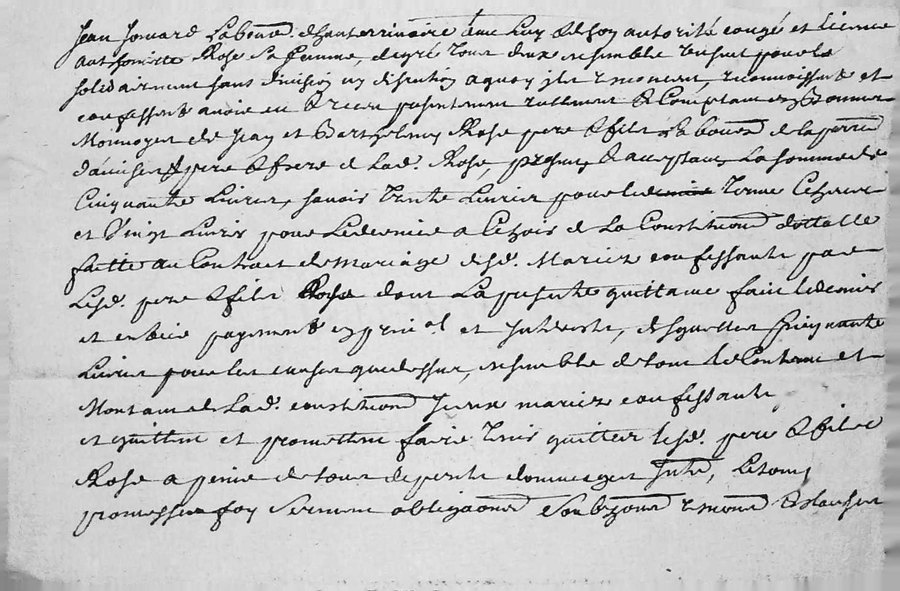 Jean Jouvard Laboureur d'hauterivoire avec luy & de son autorité congé et licence
anthoinette Rose sa femme, de gré tous deux ensemble 
solidairement sans division ny discution a quoy ils renoncent, reconnoissent et
confessent avoir eu & receu presentement reellement & Comptant en bonne
Monnoye de Jean et Barthelemy Rose pere & fils Laboureur de la perrisse
d'auise pere & frere de Lad. Rose, presens & acceptans La somme de
Cinquante Livres, savoir trente Livres pour le terme
et Vingt Livres pour Le dernier a de La Constitution dottalle
faitte au Contract de Mariage desd. Mariez confessants par
Lesd. pere & fils Rose dont La presente quittance fait le dernier
et entier payement en prin.al et interests, desquelles Cinquante
Livres pour les causes que dessus, ensemble de tout le Contenu et
Montant de Lad. constitution Iceux mariez confessants
et quittent et promettent faire tenir quitter lesd. pere & fils
Rose a peine de tous depens dommages Inte, Car ainsy
promesses foy serment obligaons renonc & clauses